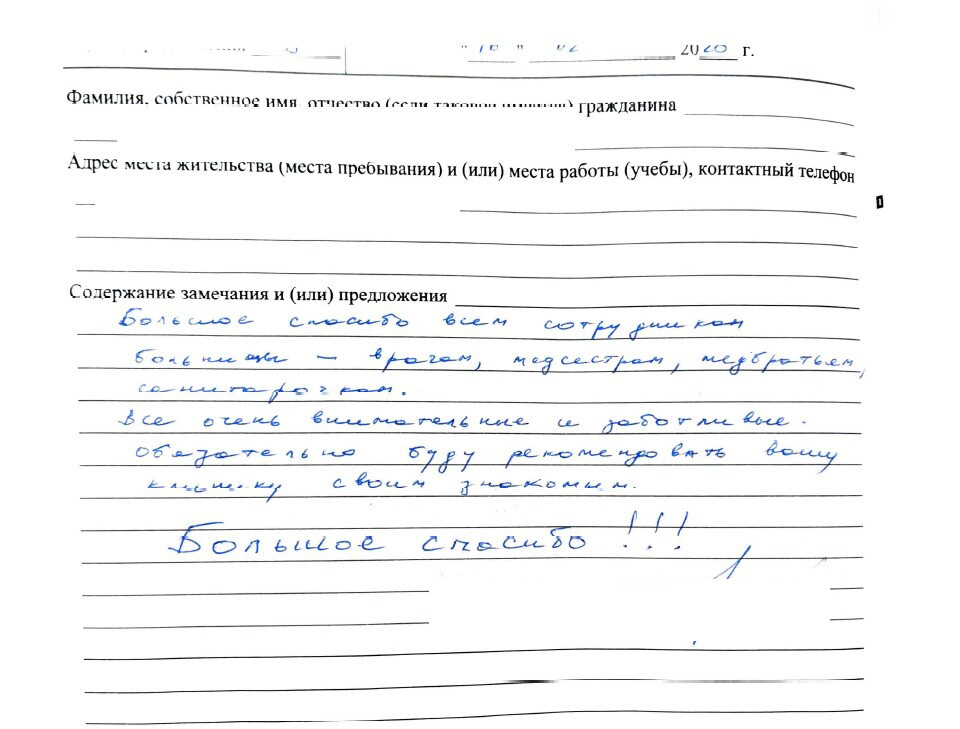 2020 г.
Фамилия, собственное имя, отчество (если таковое имеется) гражданина
Адрес места жительства (места пребывания) и (или) места работы (учебы), контактный телефон
Содержание замечания и (или) предложения
Большое спасибо всем сотрудникам
больницы – врачам, медсестрам, медбратьям,
санитарочкам.
Все очень внимательные и заботливые.
Обязательно буду рекомендовать вашу
клинику своим знакомым.
Большое спасибо !!!